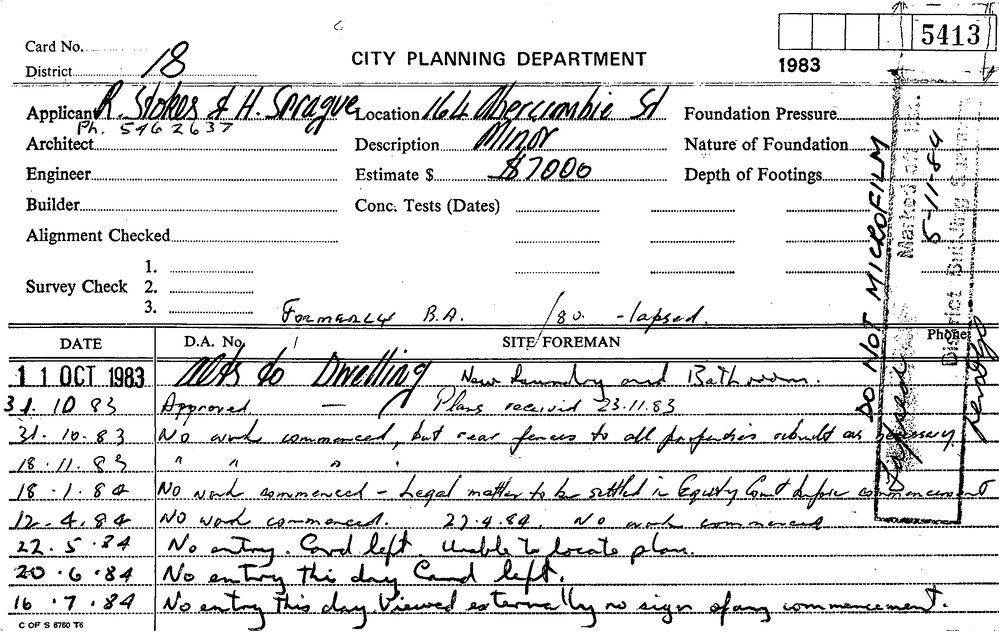 5413
Card No.
CITY PLANNING DEPARTMENT
District 18
1983
Applicant R. Stokes & H. Sprague Location 164 Abercrombie St Foundation Pressure
Ph. 5462637
Architect Description Minor Nature of Foundation
Engineer Estimate $ $7000 Depth of Footings
Builder Conc. Tests (Dates)
Alignment Checked
1.
Survey Check 2.
3.
Formerly B.A. /80. - lapsed.
DATE D.A. No. SITE FOREMAN Phone
11 OCT 1983 Alts to Dwelling New Laundry and Bathroom.
31. 10 83 Approved — Plans received 23.11.83
31.10.83 No work commenced, but rear fences to all properties rebuilt as necessary
18.11.83 " " " "
18.1.84 No work commenced - Legal matter to be settled in Equity Court before commencement
12.4.84 No work commenced. 27.4.84. No work commenced
22.5.84 No entry. Card left. Unable to locate plan.
20.6.84 No entry this day Card left.
16.7.84 No entry this day. Viewed externally no sign of any commencement.
C OF S 6760 T6
DO NOT MICROFILM
Lapsed
Marked off
5-11-84
District Building Surveyor